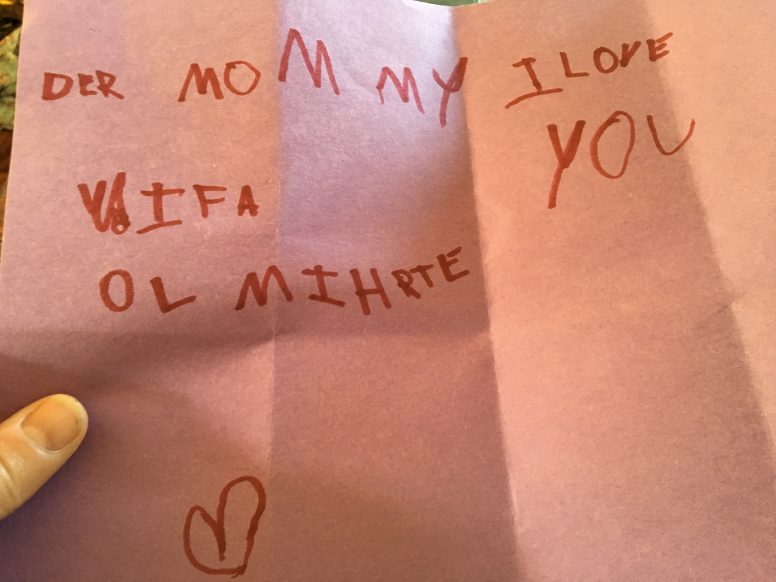 DER MOMMY I LOVE
YOU
WIFA
OL MIHRTE